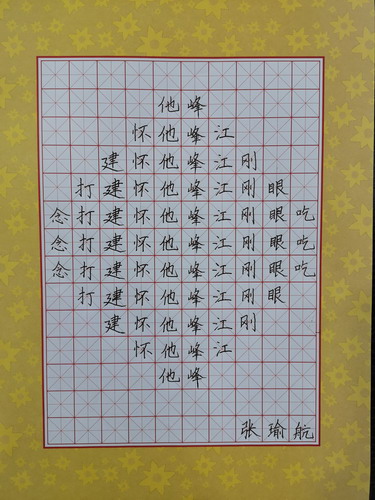 他峰
怀他峰江
建怀他峰江刚
打建怀他峰江刚眼
念打建怀他峰江刚眼吃
念打建怀他峰江刚眼吃
念打建怀他峰江刚眼吃
打建怀他峰江刚眼
建怀他峰江刚
怀他峰江
他峰
张瑜航